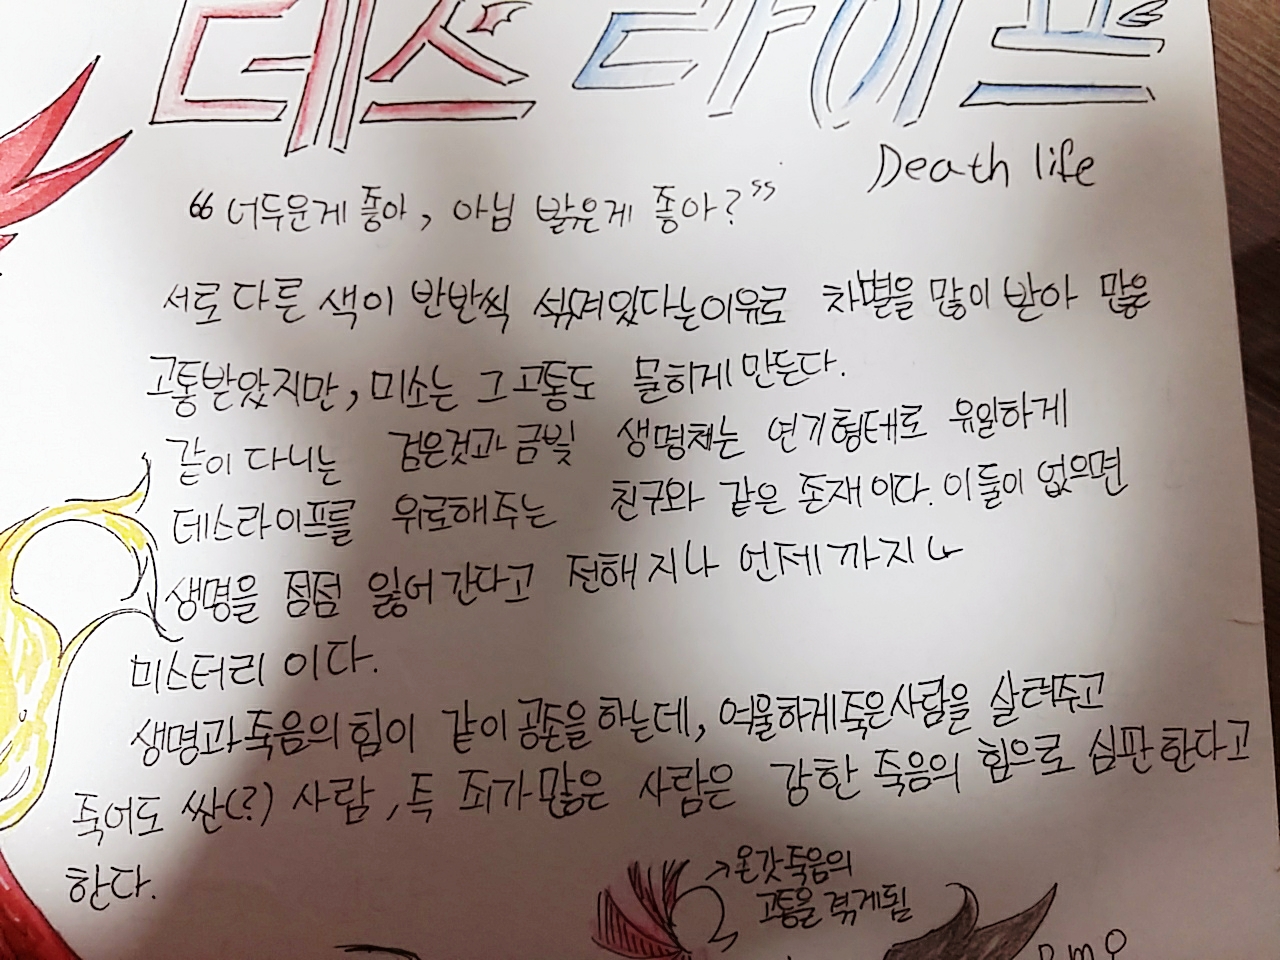 데스 라이프
Death life
“어두운게 좋아, 아님 밝은게 좋아?”
서로 다른 색이 반반씩 섞여있다는이유로 차별을 많이 받아 많은
고통받았지만, 미소는 그 고통도 묻히게 만든다.
같이 다니는 검은것과 금빛 생명체는 연기형태로 유일하게
데스라이프를 위로해주는 친구와 같은 존재이다. 이들이 없으면
생명을 점점 잃어 간다고 전해지나 언제까지나
미스터리 이다.
생명과 죽음의 힘이 같이 공존을 하는데, 억울하게죽은사람을 살려주고
죽어도 싼(?) 사람, 즉 죄가 많은 사람은 강한 죽음의 힘으로 심판한다고
한다.
→온갖죽음의
고통을 겪게됨